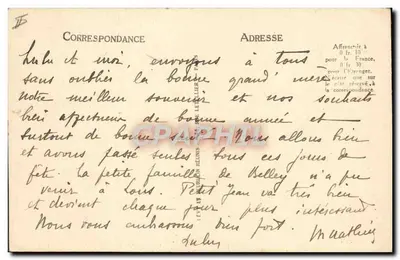 CORRESPONDANCE
ADRESSE
Affranchir à
0 fr. 10
pour la France,
0 fr.
pour l'Étranger.
la correspondance.
Lulu et moi, envoyons à tous
sans oublier la bonne grand' mère
notre meilleur souvenir et nos souhaits
bien affectueux de bonne année et
surtout de bonne santé. Nous allons bien
et avons passé seules tous ces jours de
fête. La petite famille de Belley n'a pu
venir à Lons. Petit Jean va très bien
et devient chaque jour plus intéressant
Nous vous embrassons bien fort.
Lulu